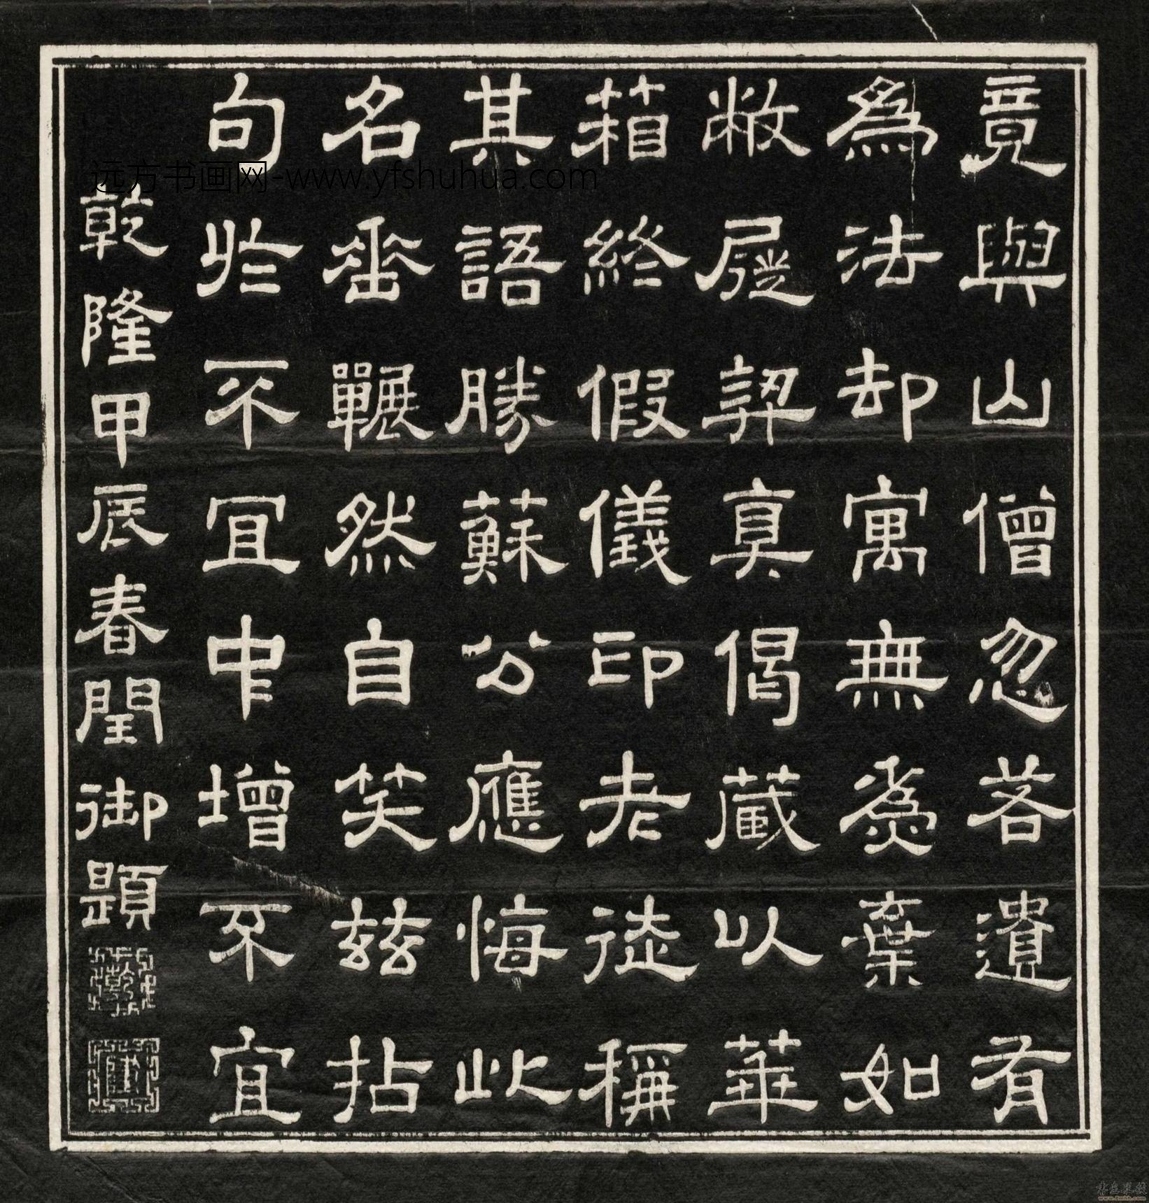 竟與山僧忽若遺有
為法却寓無為棄如
敝屣契真偈藏以華
箱終假儀印老徒稱
其語勝蘇公應悔此
名垂囅然自笑兹拈
句於不宜中增不宜
乾隆甲辰春閏御題
远方书画网-www.yfshuhua.com